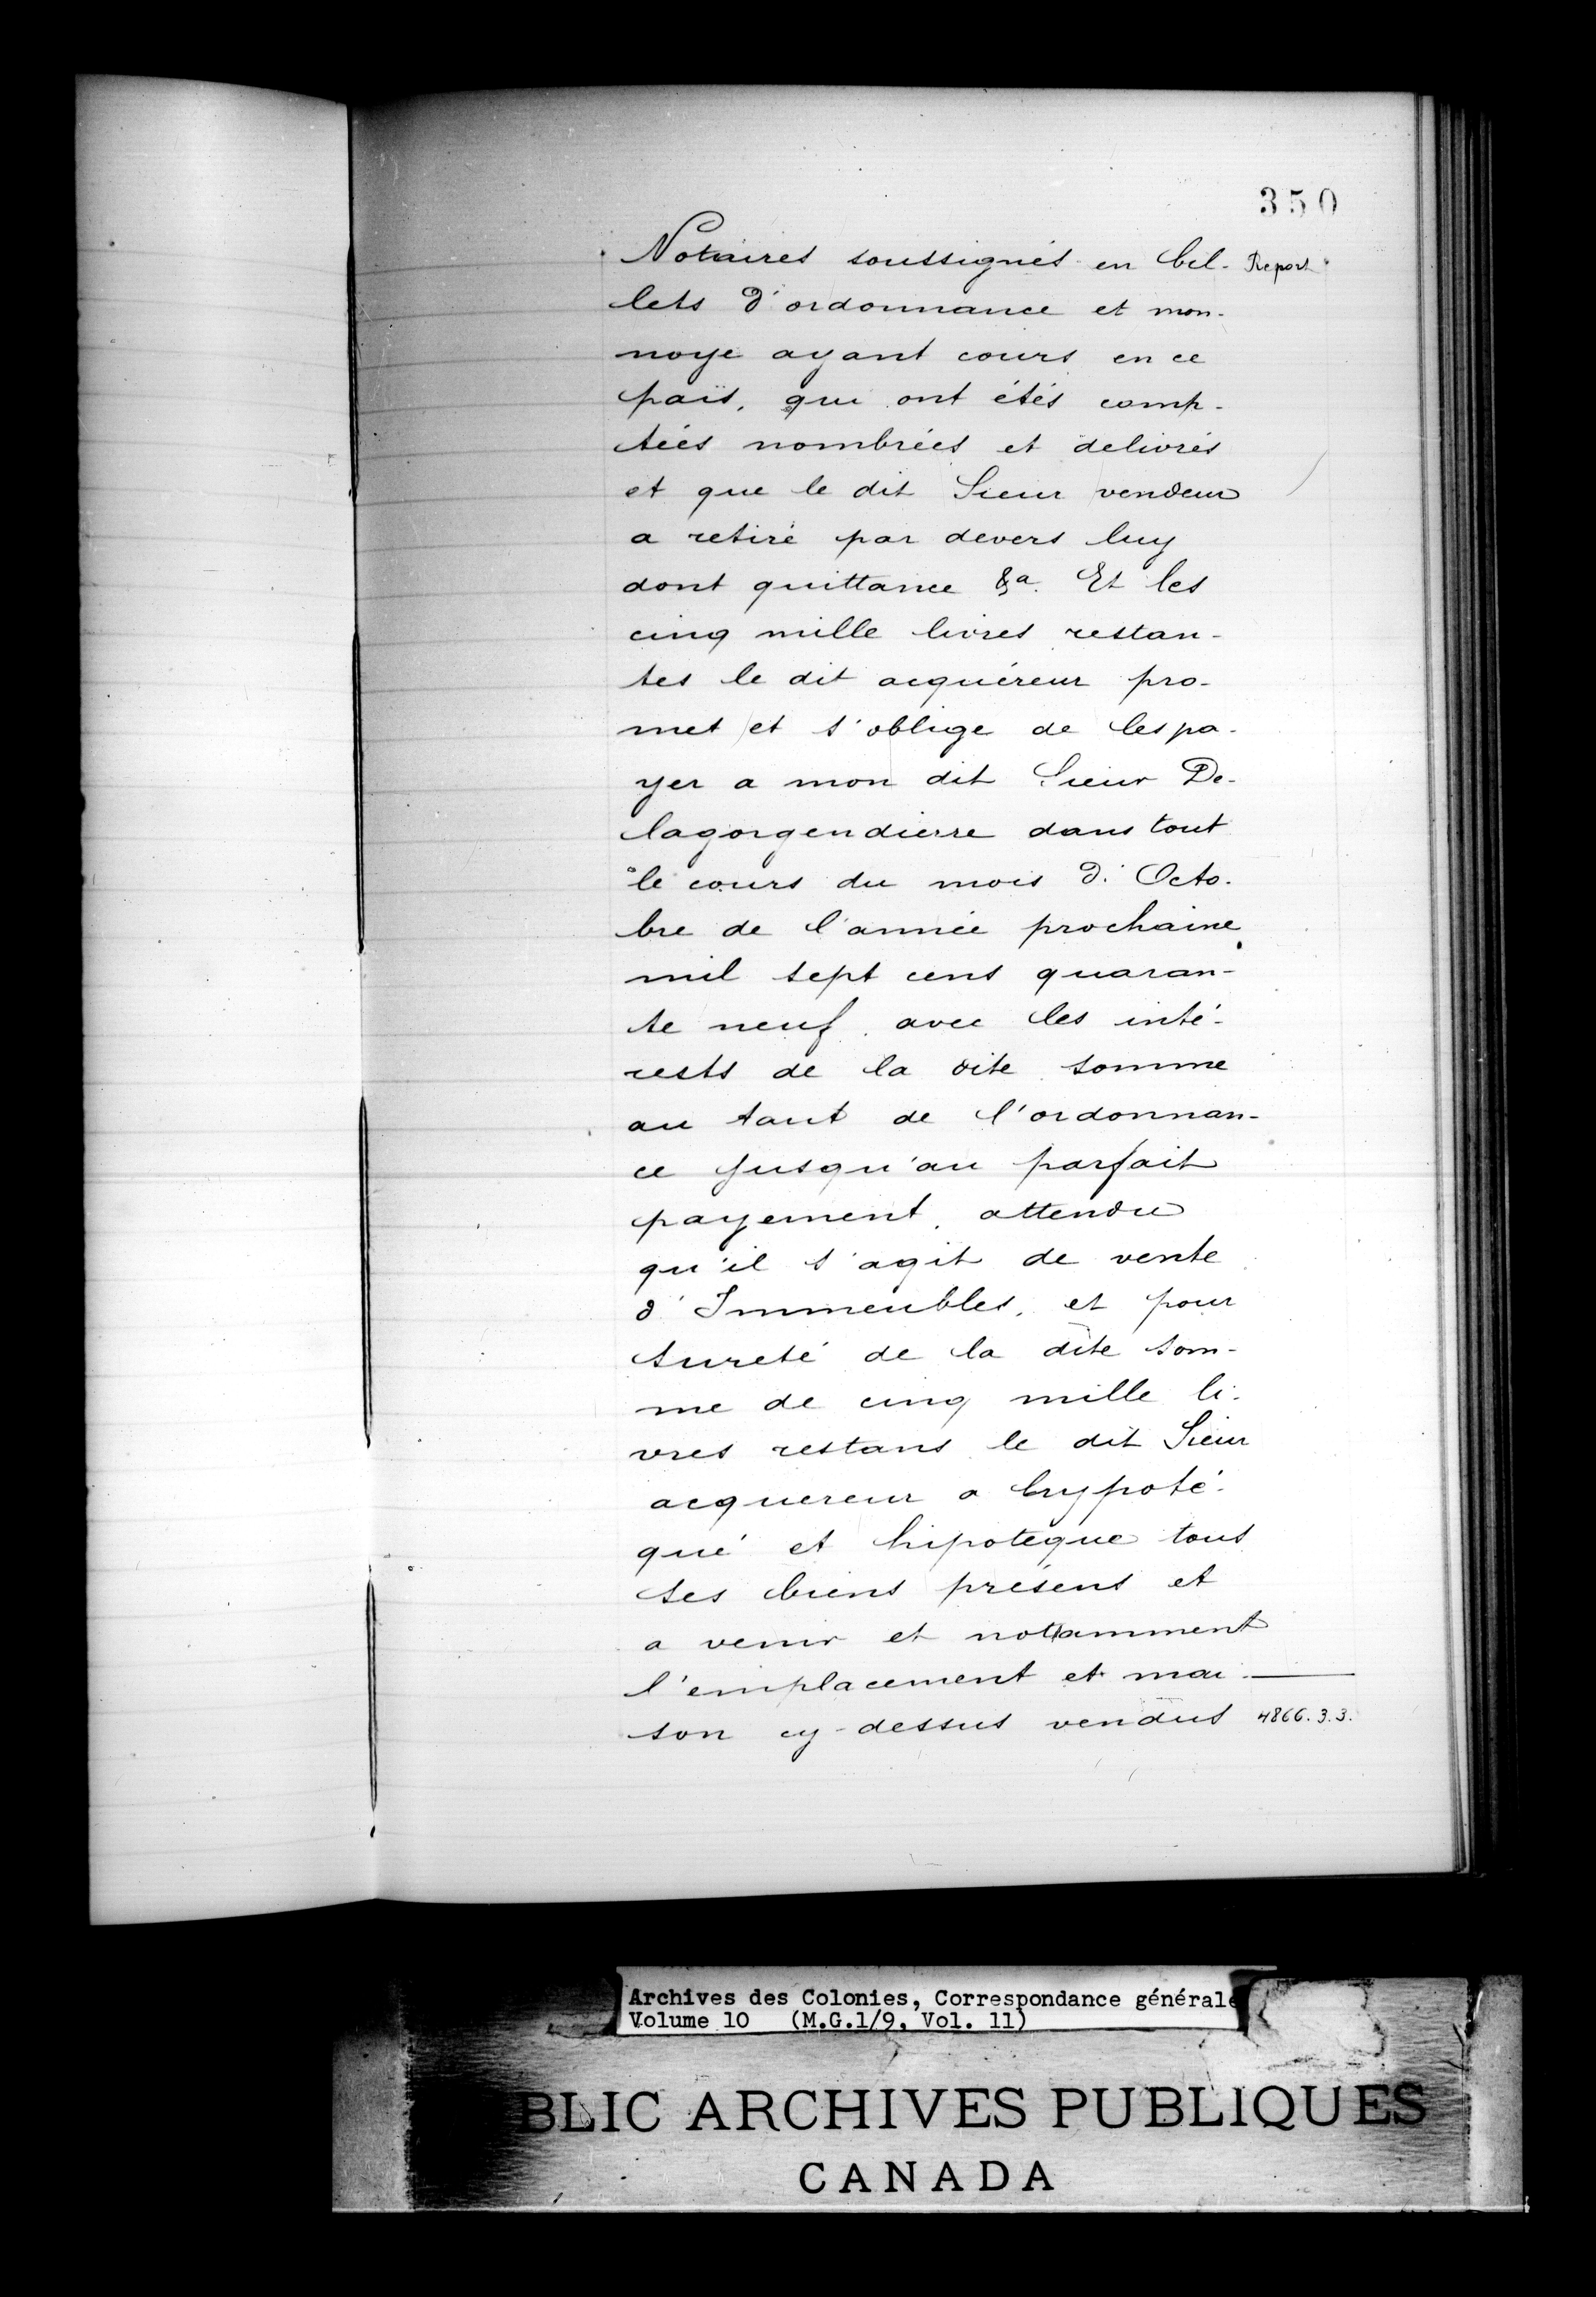 350
Notaires soussignés en bil- Report
lets d'ordonnance et mon-
noye ayant cours en ce
païs, qui ont étés comp-
tées nombrées et delivrés
et que le dit Sieur vendeur
a retiré par devers luy
dont quittance &a. Et les
cinq mille livres restan-
tes le dit acquéreur pro-
met et s'oblige de les pa-
yer a mon dit Sieur De-
lagorgendierre dans tout
le cours du mois d'Octo-
bre de l'année prochaine
mil sept cens quaran-
te neuf, avec les inté-
rests de la dite somme
au taut de l'ordonnan-
ce jusqu'au parfait
payement, attendu
qu'il s'agit de vente
d'Immeubles, et pour
sureté de la dite som-
me de cinq mille li-
vres restans le dit Sieur
acquereur a hypoté-
qué et hipotèque tous
ses biens présens et
a venir et notamment
l'emplacement et mai-
son cy-dessus vendus 4866.3.3.
Archives des Colonies, Correspondance générale
Volume 10 (M.G.1/9, Vol. 11)
BLIC ARCHIVES PUBLIQUES
CANADA